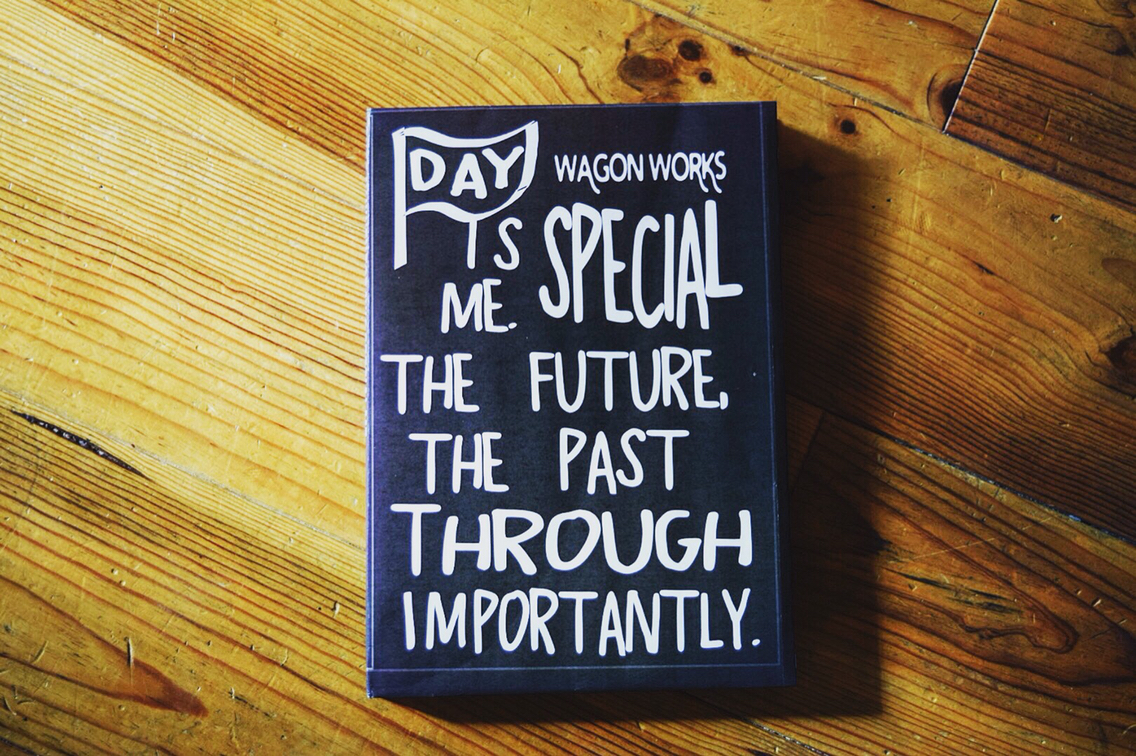 DAY WAGON WORKS
IS SPECIAL
ME.
THE FUTURE,
THE PAST
THROUGH
IMPORTANTLY.